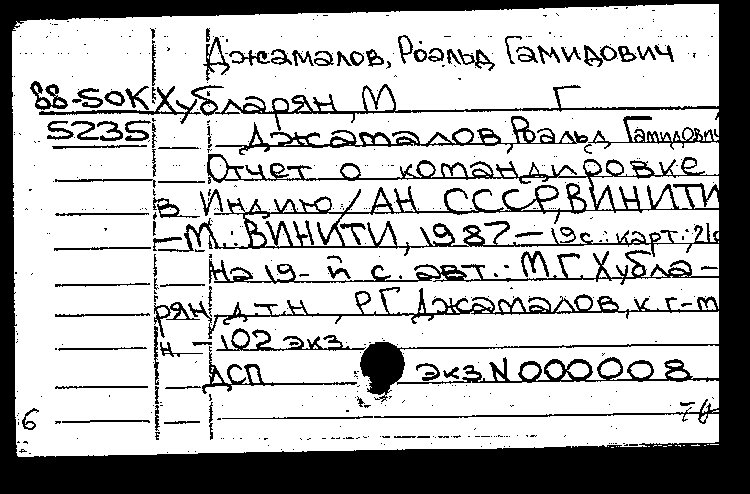 Джамалов, Роальд Гамидович
88-5ОК Хубларян, М Г
5235 Джамалов, Роальд Гамидович
Отчет о командировке
в Индию / АН СССР, ВИНИТИ
—М.: ВИНИТИ, 1987.— 19 с.: карт.; 21с
На 19-й с. авт.: М.Г. Хубла-
рян, д.т.н., Р.Г. Джамалов, к.г.-м
н. — 102 экз.
ДСП экз. N 000008
6